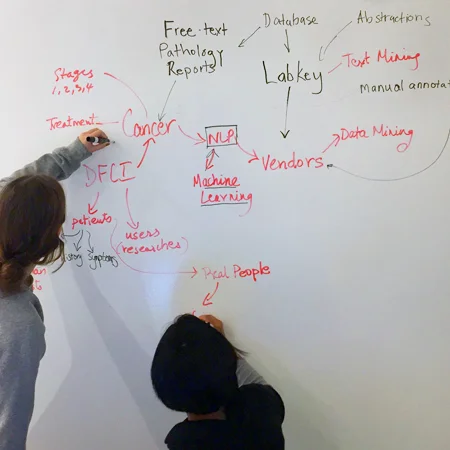 Free-text
Pathology
Reports
Database
Abstractions
Labkey
Text Mining
manual annotat
Stages
1,2,3,4
Treatment
Cancer
NLP
Machine
Learning
Vendors
Data Mining
DFCI
patients
users
(researches)
Symptoms
Real People